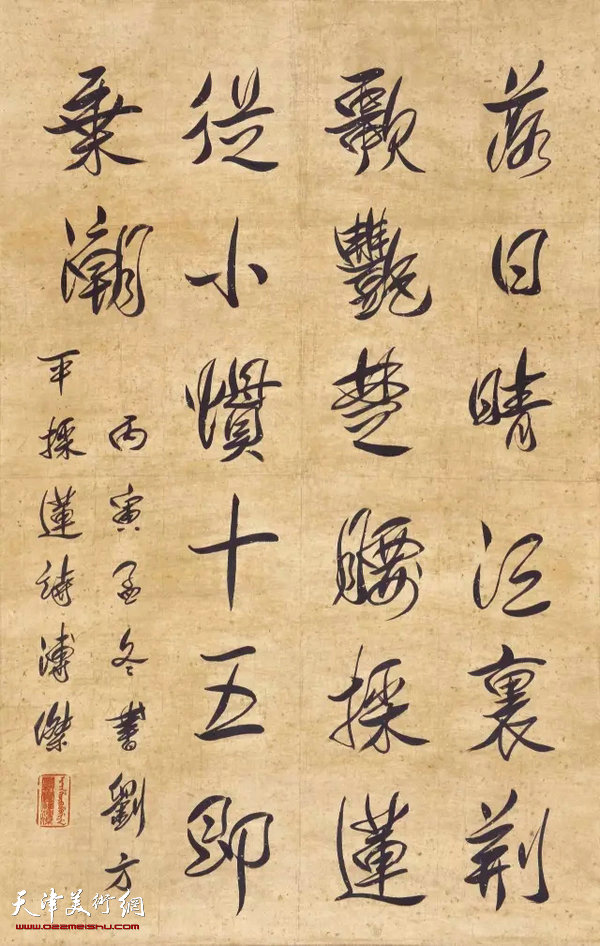 落日晴江裏荊
歌艷楚腰採蓮
從小慣十五即
乘潮
丙寅孟冬書劉方
平採蓮詩溥傑
天津美術網
www.022meishu.com